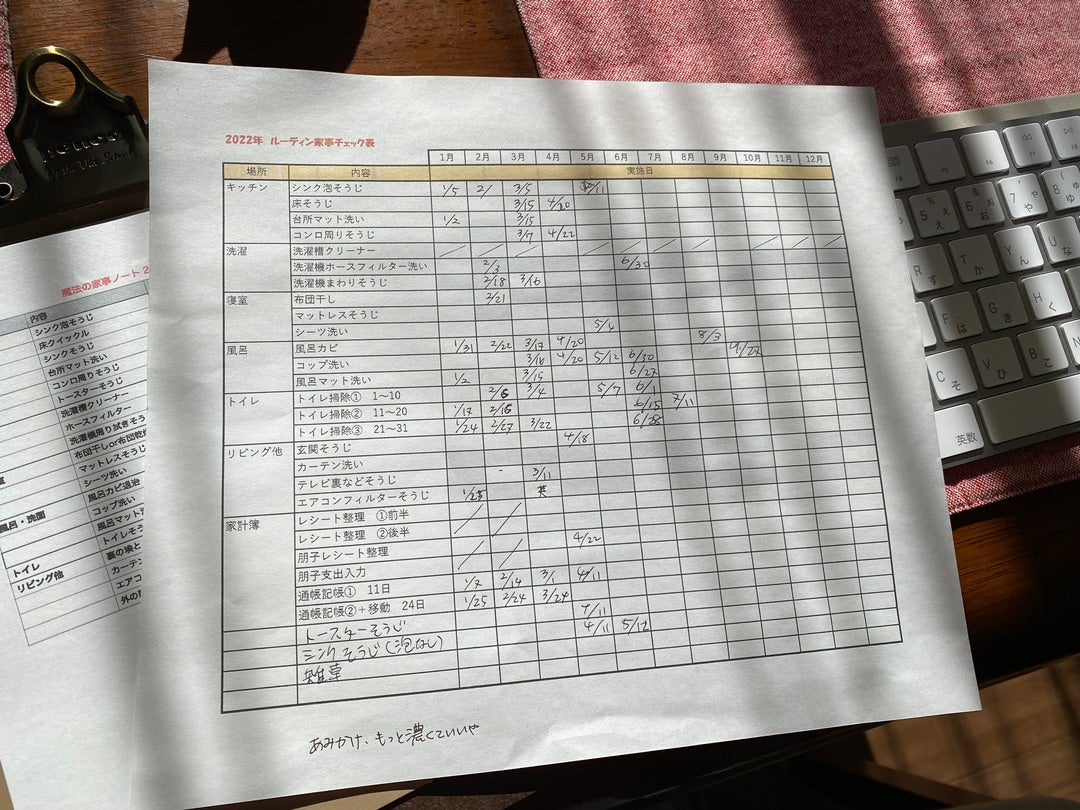 2022年 ルーティン家事チェック表
1月 2月 3月 4月 5月 6月 7月 8月 9月 10月 11月 12月
場所 内容 実施日
キッチン シンク泡そうじ 1/5 2/ 3/5 5/11
床そうじ 3/15 4/20
台所マット洗い 1/2 3/15
コンロ周りそうじ 3/7 4/22
洗濯 洗濯槽クリーナー
洗濯機ホースフィルター洗い 2/3 6/30
洗濯機まわりそうじ 2/18 3/16
寝室 布団干し 2/21
マットレスそうじ
シーツ洗い 5/6
風呂 風呂カビ 1/31 2/22 3/17 4/20 8/3
コップ洗い 3/16 4/20 5/12 6/30 9/27
風呂マット洗い 1/2 3/15 6/27
トイレ トイレ掃除① 1～10 2/6 3/4 5/7 6/1
トイレ掃除② 11～20 1/17 2/16 6/15 7/11
トイレ掃除③ 21～31 1/24 2/27 3/22 6/28
リビング他 玄関そうじ 4/18
カーテン洗い
テレビ裏などそうじ 3/11
エアコンフィルターそうじ 1/25
家計簿 レシート整理 ①前半
レシート整理 ②後半 4/22
朋子レシート整理
朋子支出入力 1/7 2/14 3/1 4/11
通帳記帳① 11日 1/25 2/24 3/24
通帳記帳②＋移動 24日
トースターそうじ 4/11
シンクそうじ(泡なし) 4/11 5/12
雑草
あみかけ、もっと濃くていいや
魔法の家事ノート 2
内容
シンク泡そうじ
床クイックル
シンクそうじ
台所マット洗い
コンロ周りそうじ
トースターそうじ
洗濯槽クリーナー
ホースフィルター
洗濯機周り拭きそう
布団干しor布団乾
マットレスそうじ
シーツ洗い
風呂カビ退治
風呂・洗面 コップ洗い
風呂マット
トイレ トイレそう
リビング他
カーテン
エアコ
外の
F6
F7
5 え
6 お
7 や
8 ゆ
R す
T か
Y ん
U な
F は
G き
H く
C そ
V ひ
B こ
N
英数